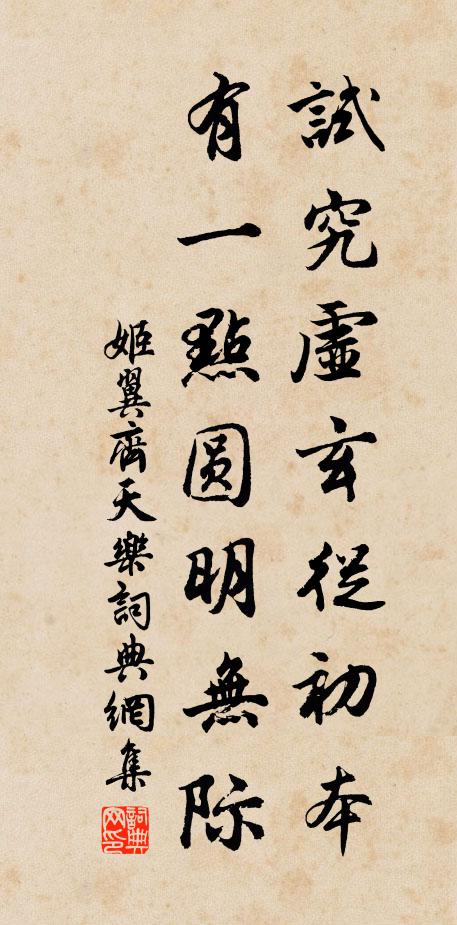 試究虛玄從初本
有一點圓明無際
姬翼齊天樂詞典網集
詞典網印